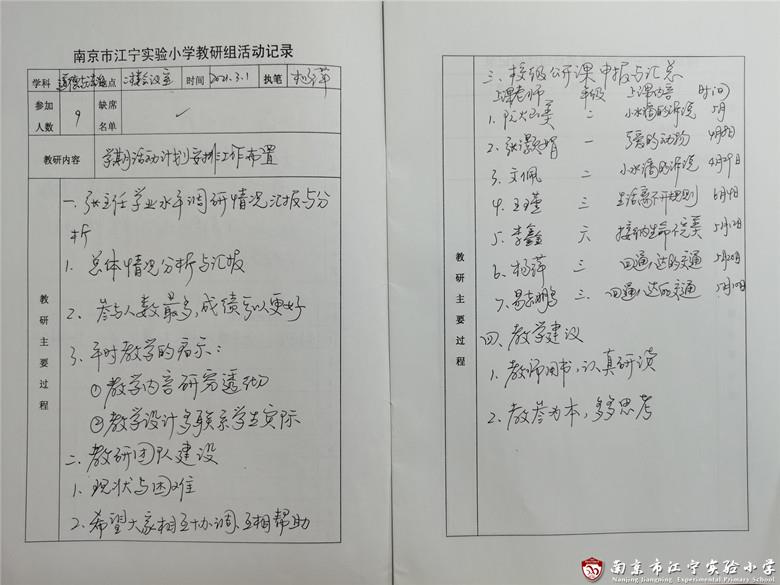 南京市江宁实验小学教研组活动记录
学科 道德与法治 地点 二楼会议室 时间 2021.3.1 执笔 杨萍
参加人数 9 缺席名单
教研内容 学期活动计划安排工作布置
教研主要过程
一.张主任学业水平调研情况汇报与分
析
1.总体情况分析与汇报
2.参与人数最多,成绩可以更好
3.平时教学的启示:
①教学内容研究透彻
②教学设计多联系学生实际
二.教研团队建设
1.现状与困难
2.希望大家相互协调、互相帮助
教研主要过程
三.校级公开课申报与汇总
上课老师 年级 上课内容 时间
1. 二 小水滴的诉说 5月
2. 一 可爱的动物 4月8日
3.文佩 二 小水滴的诉说 4月29日
4.王瑾 三 生活离不开规则 6月9日
5.李鑫 六 接纳生命不完美 5月12日
6.杨萍 三 四通八达的交通 5月20日
7. 三 四通八达的交通 5月10日
四.教学建议
1.教师用书,认真研读
2.教参为本,多多思考
南京市江宁实验小学
Nanjing Jiangning Experimental Primary School